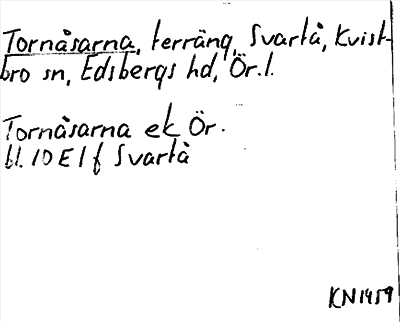 Tornåsarna, terräng, Svartå, Kvist-
bro sn, Edsbergs hd, Ör. l.
Tornåsarna ek Ör.
bl. 10 E 1 f Svartå
KN 1959